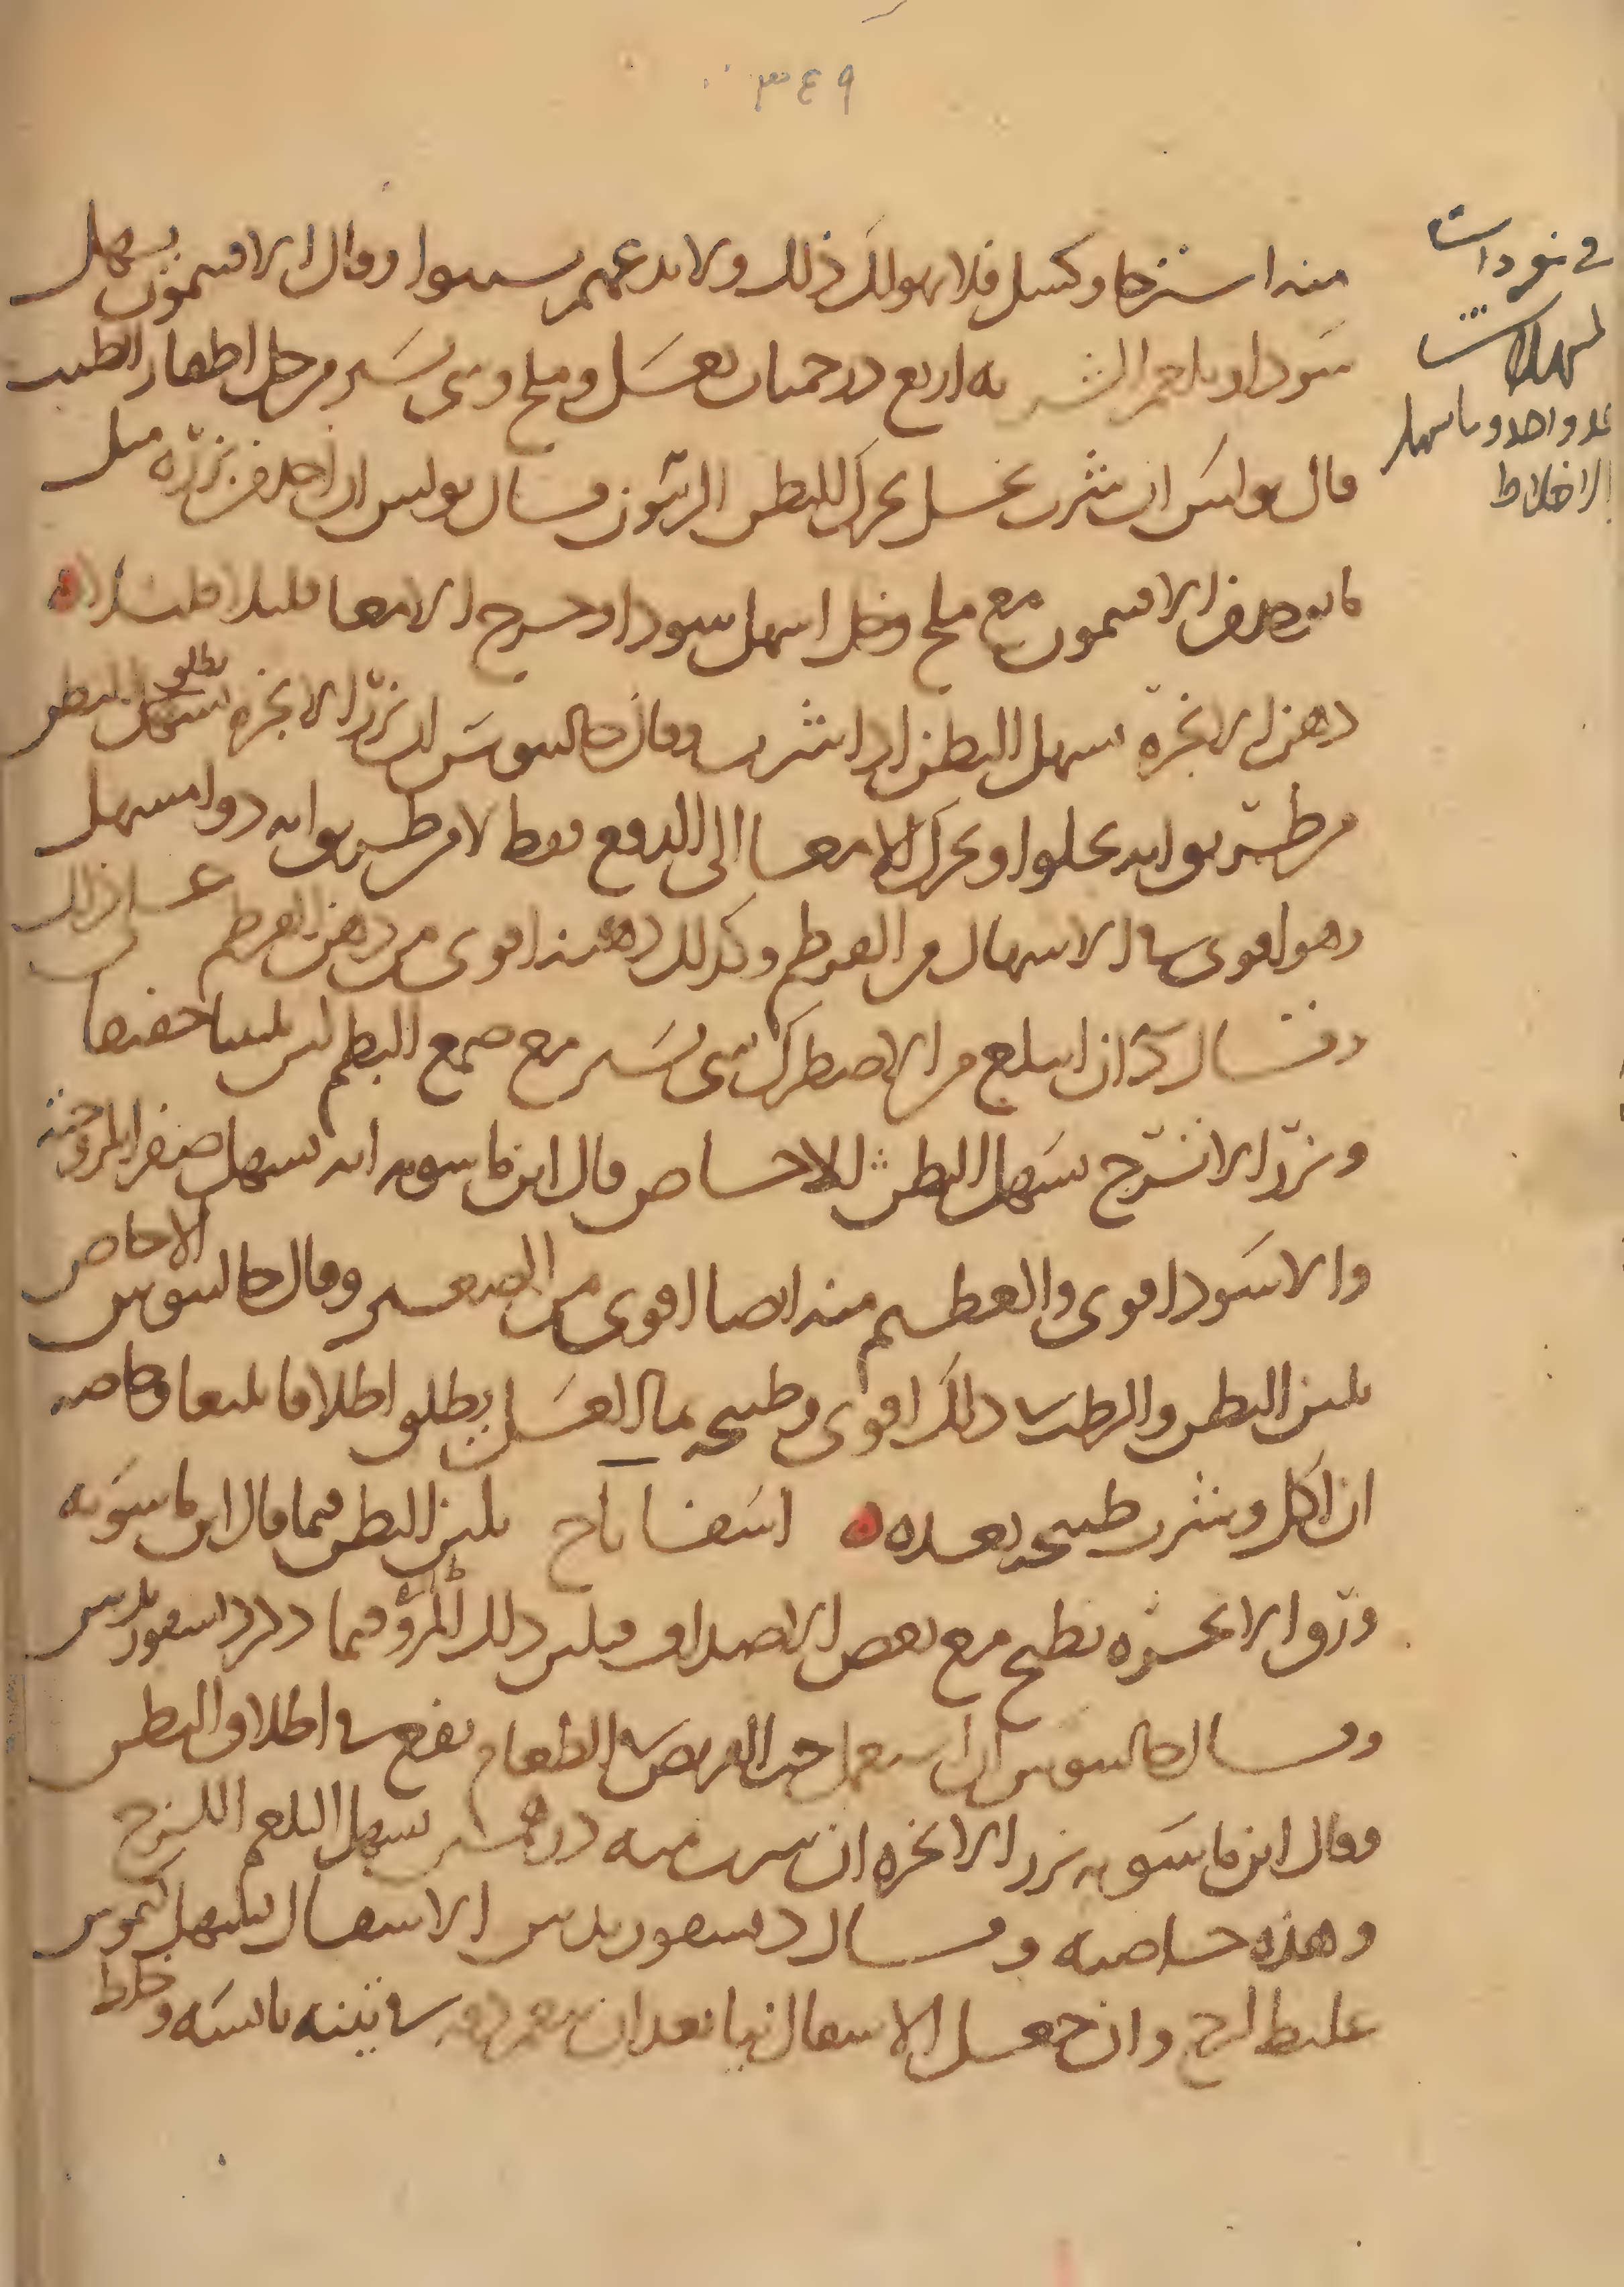 ٣٤٩
في مفردات
المسهلات
عدد واحد وما يسهل
الاخلاط
منه استرخا وكسل فلا يهولك ذلك ولا تدعهم يستعملوا وقال الافتيمون يسهل
سودا وبلغم الشربه اربع درخميات بعسل وملح وشي يسير من خل اظفار الطيب
قال بولس ان شرب بخل يحرك البطن وقال بولس ان اخذ من بزره مثل
ما يوخذ من الافتيمون مع ملح وخل اسهل سودا وجرح الامعا قليلا قليلا
دهن الانجرة يسهل البطن اذا شرب وقال جالينوس ان بزر الانجرة يسهل يطلق البطن
من طريق انه يجلوا ويحرك الامعا الى الدفع فقط لا من طريق انه دوا مسهل
وهو اقوى في الاسهال من القرطم وكذلك دهنه اقوى من دهن القرطم على ذلك
وقال د ان ابتلع من الاصطرك شي يسير مع صمغ البطم لين تليينا خفيفا
وبزر الاترج يسهل البطن الاجاص قال ابن ماسويه انه يسهل صفرا
والاسود اقوى والعظيم منه ايضا اقوى من الصغير وقال جالينوس الاجاص
يلين البطن والرطب في ذلك اقوى وطبيخه بما العسل يطلق اطلاقا بليغا وخاصه
ان اكل وشرب طبيخه بعده اسفاناخ يلين البطن فيما قال ابن ماسويه
ورق الانجره يطبخ مع بعض الاصداف فيلين ذلك المرق فيما ذكر ديسقوريدس
وقال جالينوس ان استعمل حب القريص في الطعام نفع في اطلاق البطن
وقال ابن ماسويه بزر الانجره ان شرب منه درهمين يسهل البلغم اللزج
وهذه خاصيته وقال ديسقوريدس الاسقال يسهل كيموس
غليظ لزج وان جعل الاسقال نيا بعد ان في تينه يابسه وخلط